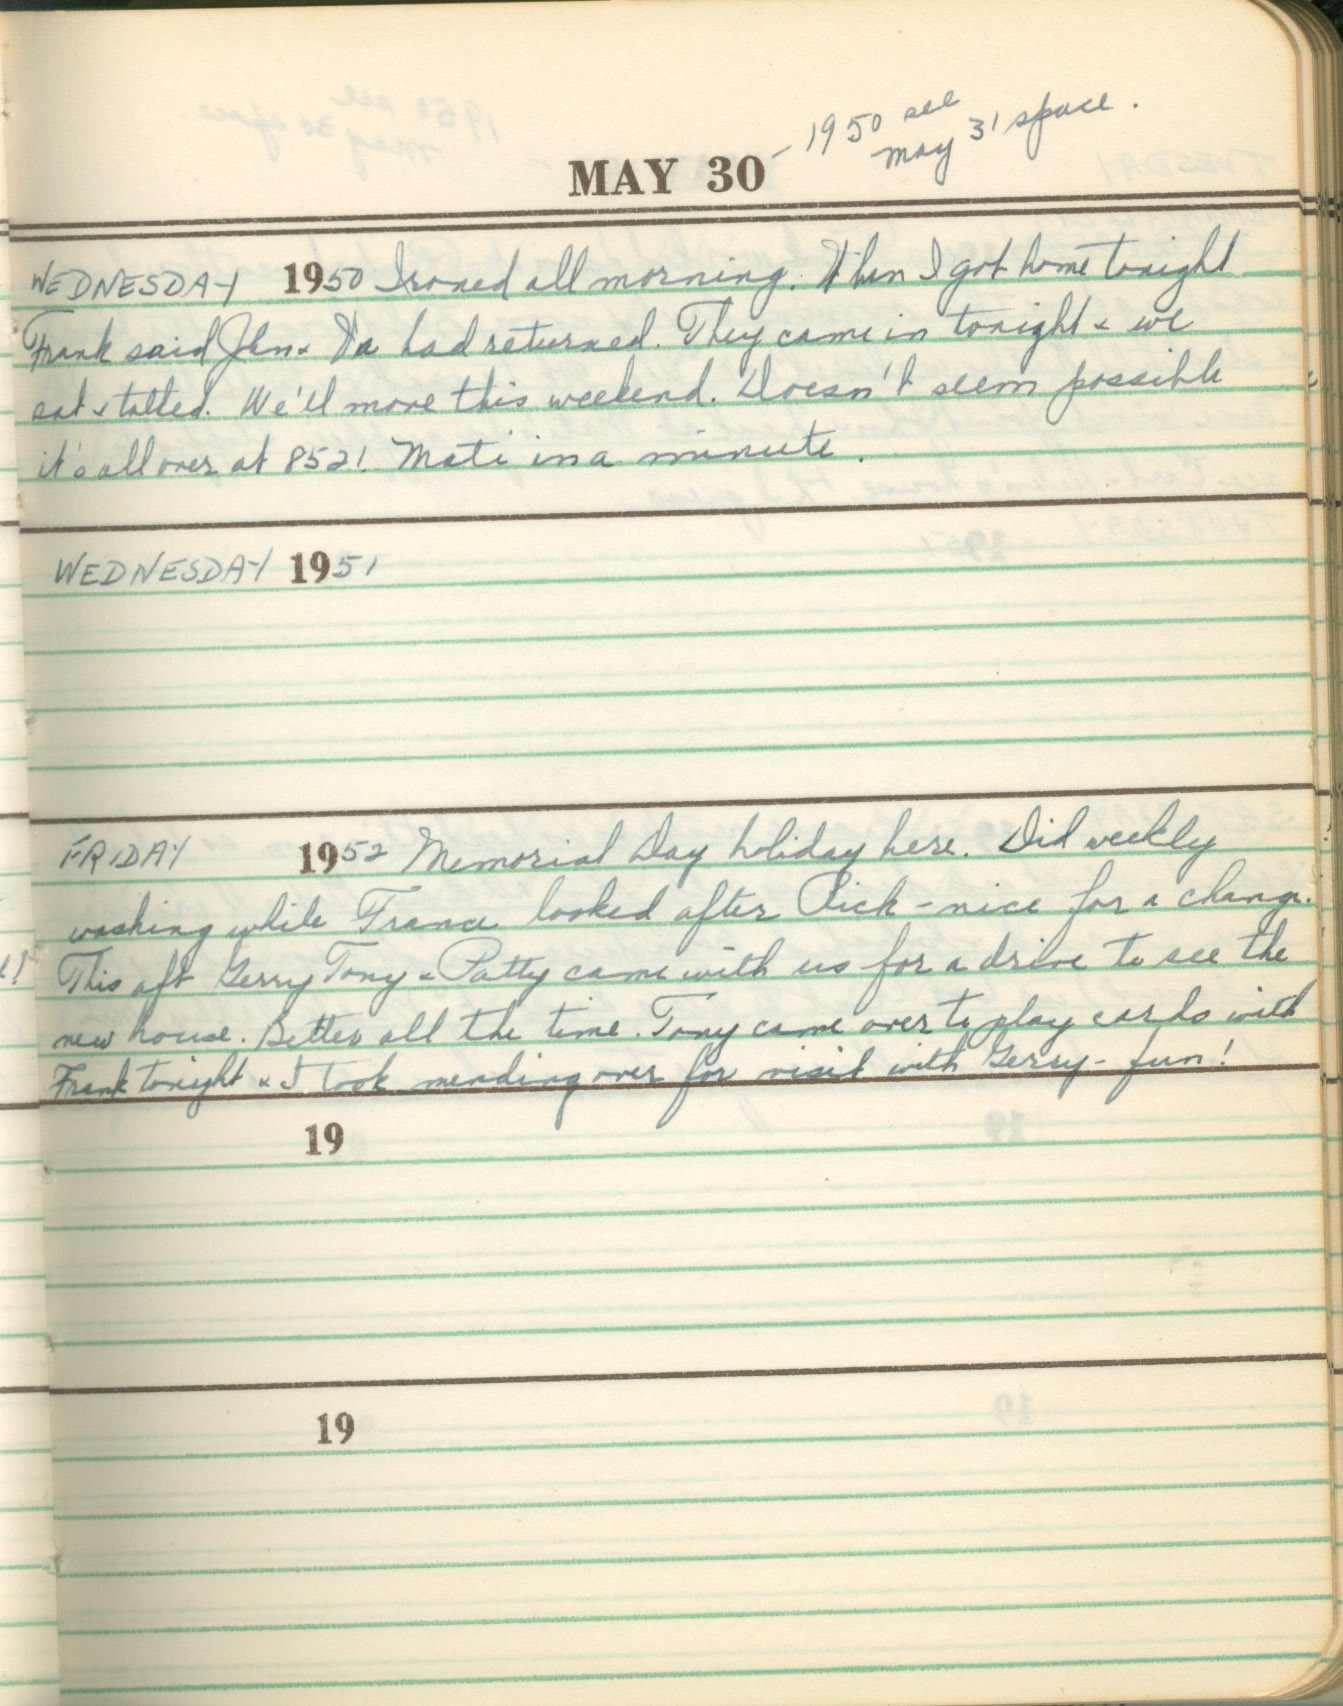 - 1950 see
may 31 space.
MAY 30
WEDNESDAY 1950 Ironed all morning. When I got home tonight
Frank said John & had returned. They came in tonight & we
sat & talked. We'll move this weekend. Doesn't seem possible
it's all over at 852! in a minute.
WEDNESDAY 1951
FRIDAY 1952 Memorial Day holiday here. Did weekly
washing while looked after Rick - nice for a change.
This aft Gerry Tony & Patty came with us for a drive to see the
new house. Better all the time. Tony came over to play cards with
Frank tonight & I took mending over for visit with Gerry - fun!
19
19